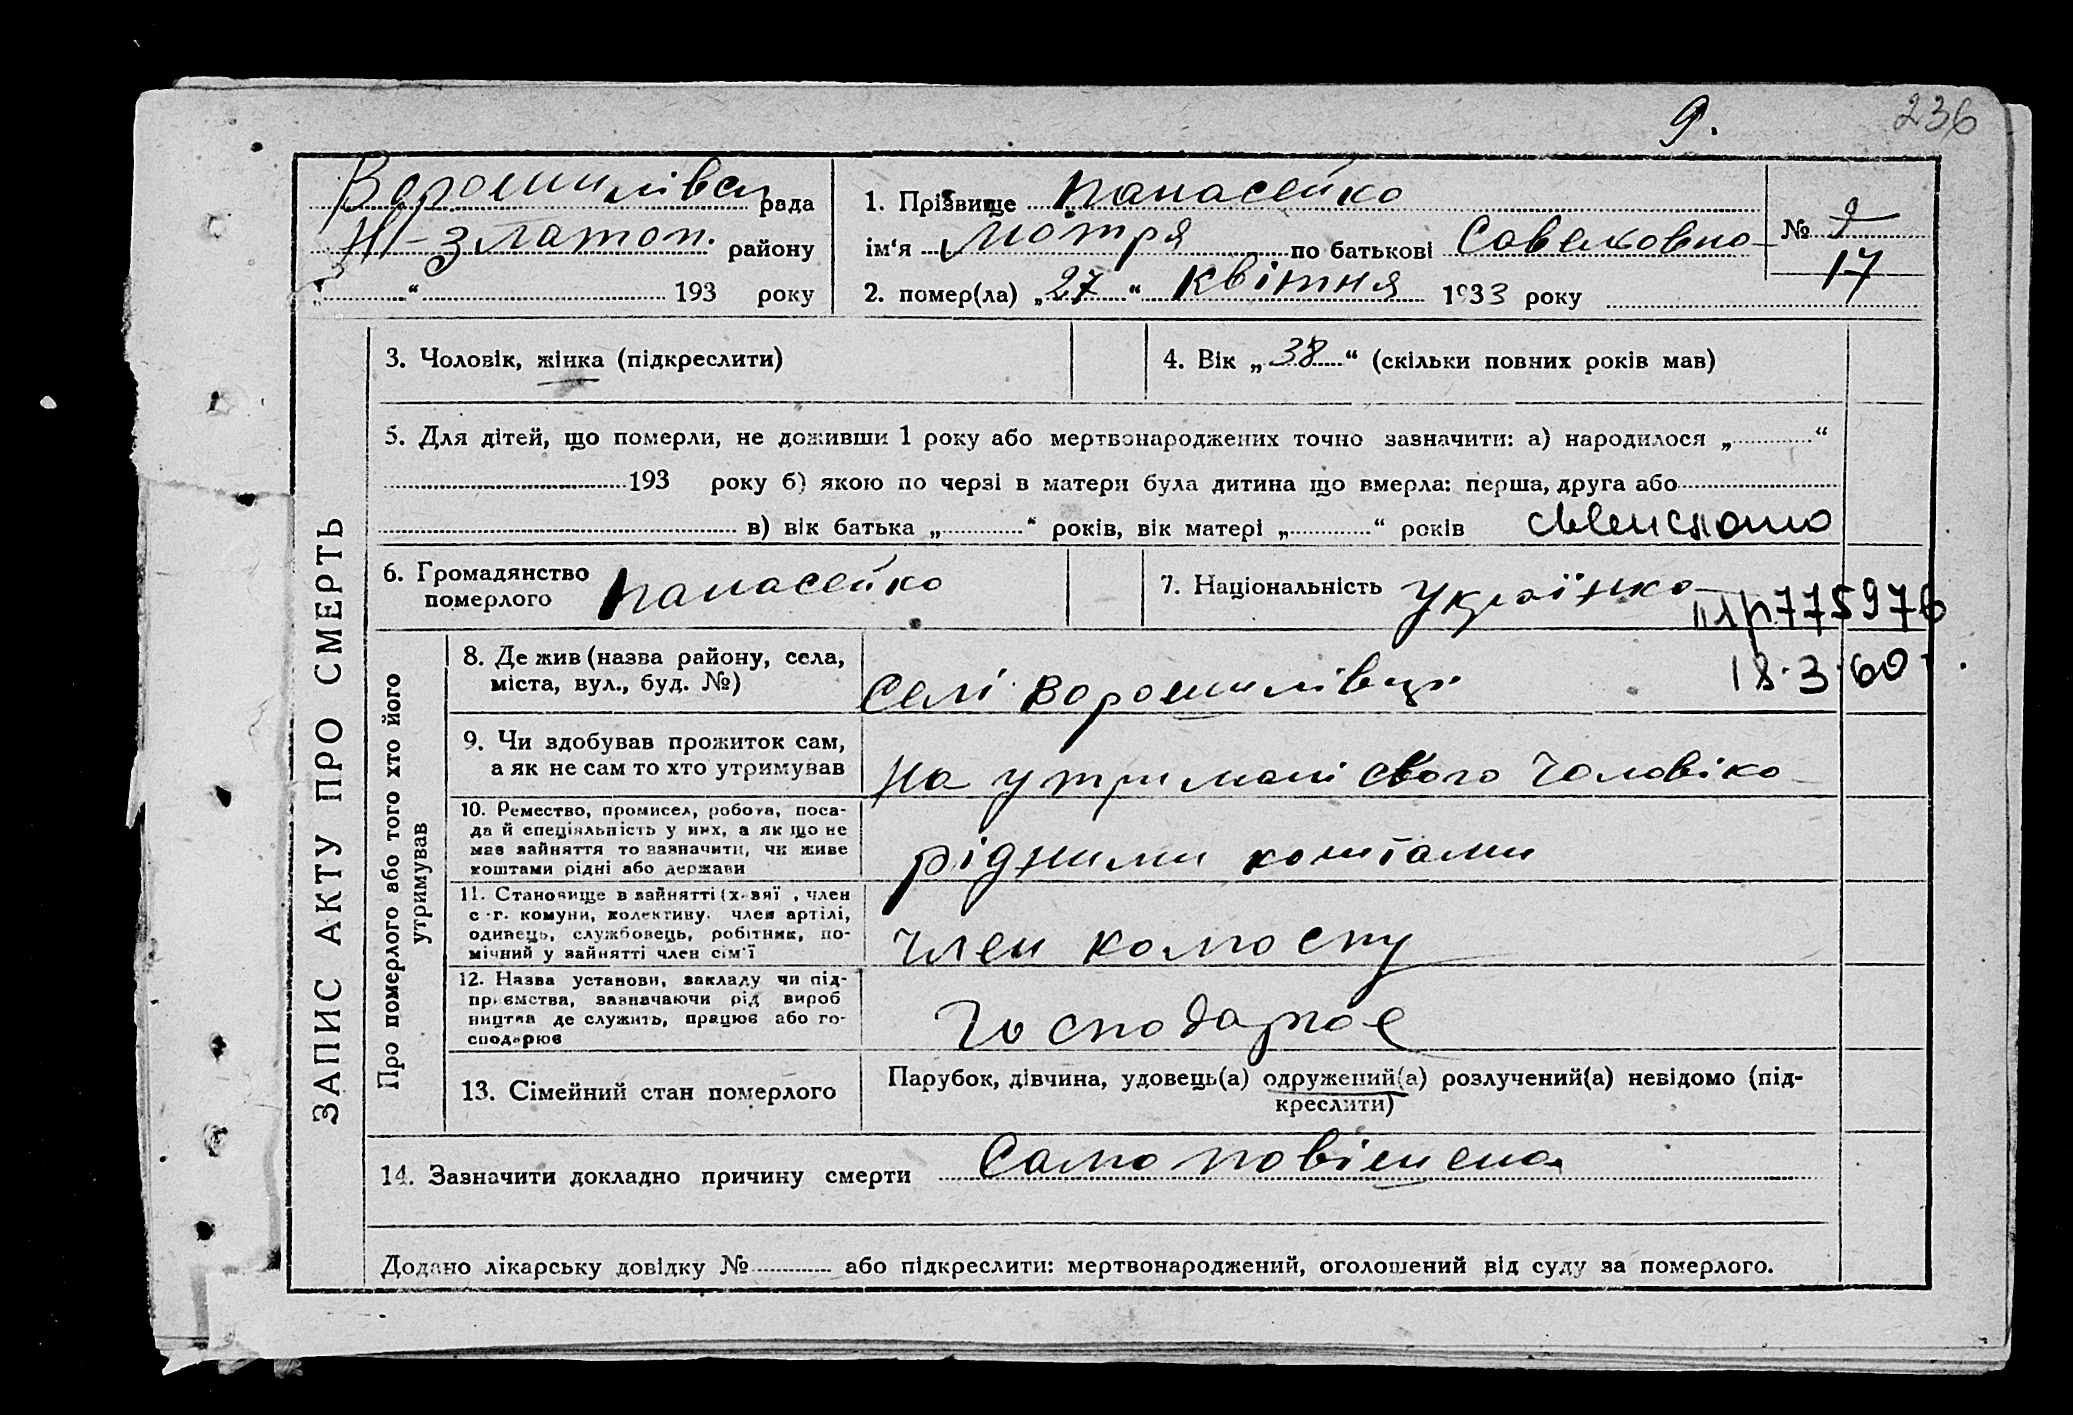 9. 236
Ворошилівса рада
Н-златоп. району
„ “ 193 року
1. Прізвище Панасейко
ім‘я Мотря по батькові Савеловна
2. помер(ла) „27“ квітня 1933 року
№ 9
17
3. Чоловік, жінка (підкреслити)
4. Вік „38“ (скільки повних років мав)
5. Для дітей, що померли, не доживши 1 року або мертвонароджених точно зазначити: а) народилося „ “
193 року б) якою по черзі в матери була дитина що вмерла: перша, друга або
в) вік батька „ “ років, вік матері „ “ років
6. Громадянство померлого Панасейко
7. Національність Українка
775976
18.3.60
ЗАПИС АКТУ ПРО СМЕРТЬ
Про померлого або того хто його
утримував
8. Де жив (назва району, села,
міста, вул., буд. №)
Селі Ворошилівці
9. Чи здобував прожиток сам,
а як не сам то хто утримував
На утримані свого чоловіка
10. Ремество, промисел, робота, поса-
да й спеціяльність у них, а як що не
має зайняття то зазначити, чи живе
коштами рідні або держави
рідними коштами
11. Становище в зайнятті (х-зяї , член
с-г. комуни, колективу. член артілі,
одинець, службовець, робітник, по-
мічний у зайнятті член сім'ї
член колгоспу
12. Назва установи, закладу чи під-
приємства, зазначаючи рід вироб
ництва де служить, працює або го-
сподарює
Господарює
13. Сімейний стан померлого
Парубок, дівчина, удовець(а) одружений(а) розлучений(а) невідомо (під-
креслити)
14. Зазначити докладно причину смерти Само повішена
Додано лікарську довідку № або підкреслити: мертвонароджений, оголошений від суду за померлого.